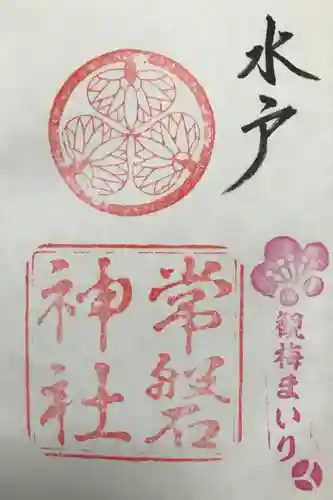 水戸
常磐
神社
観梅まいり